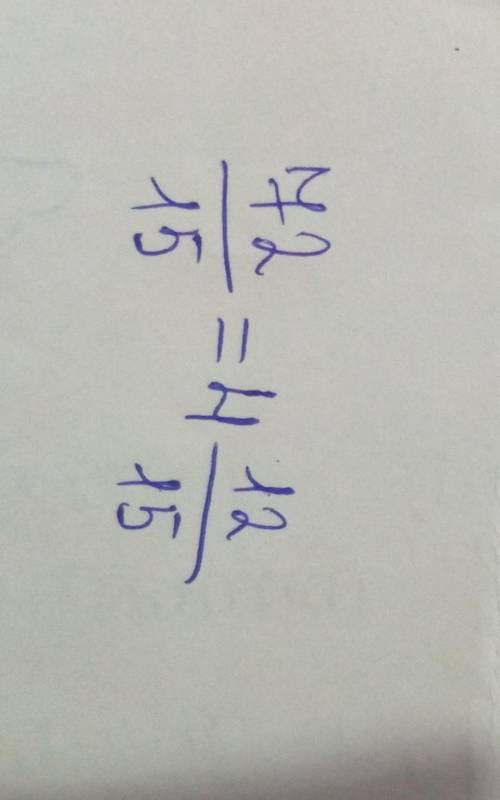 72/15 = 4 12/15